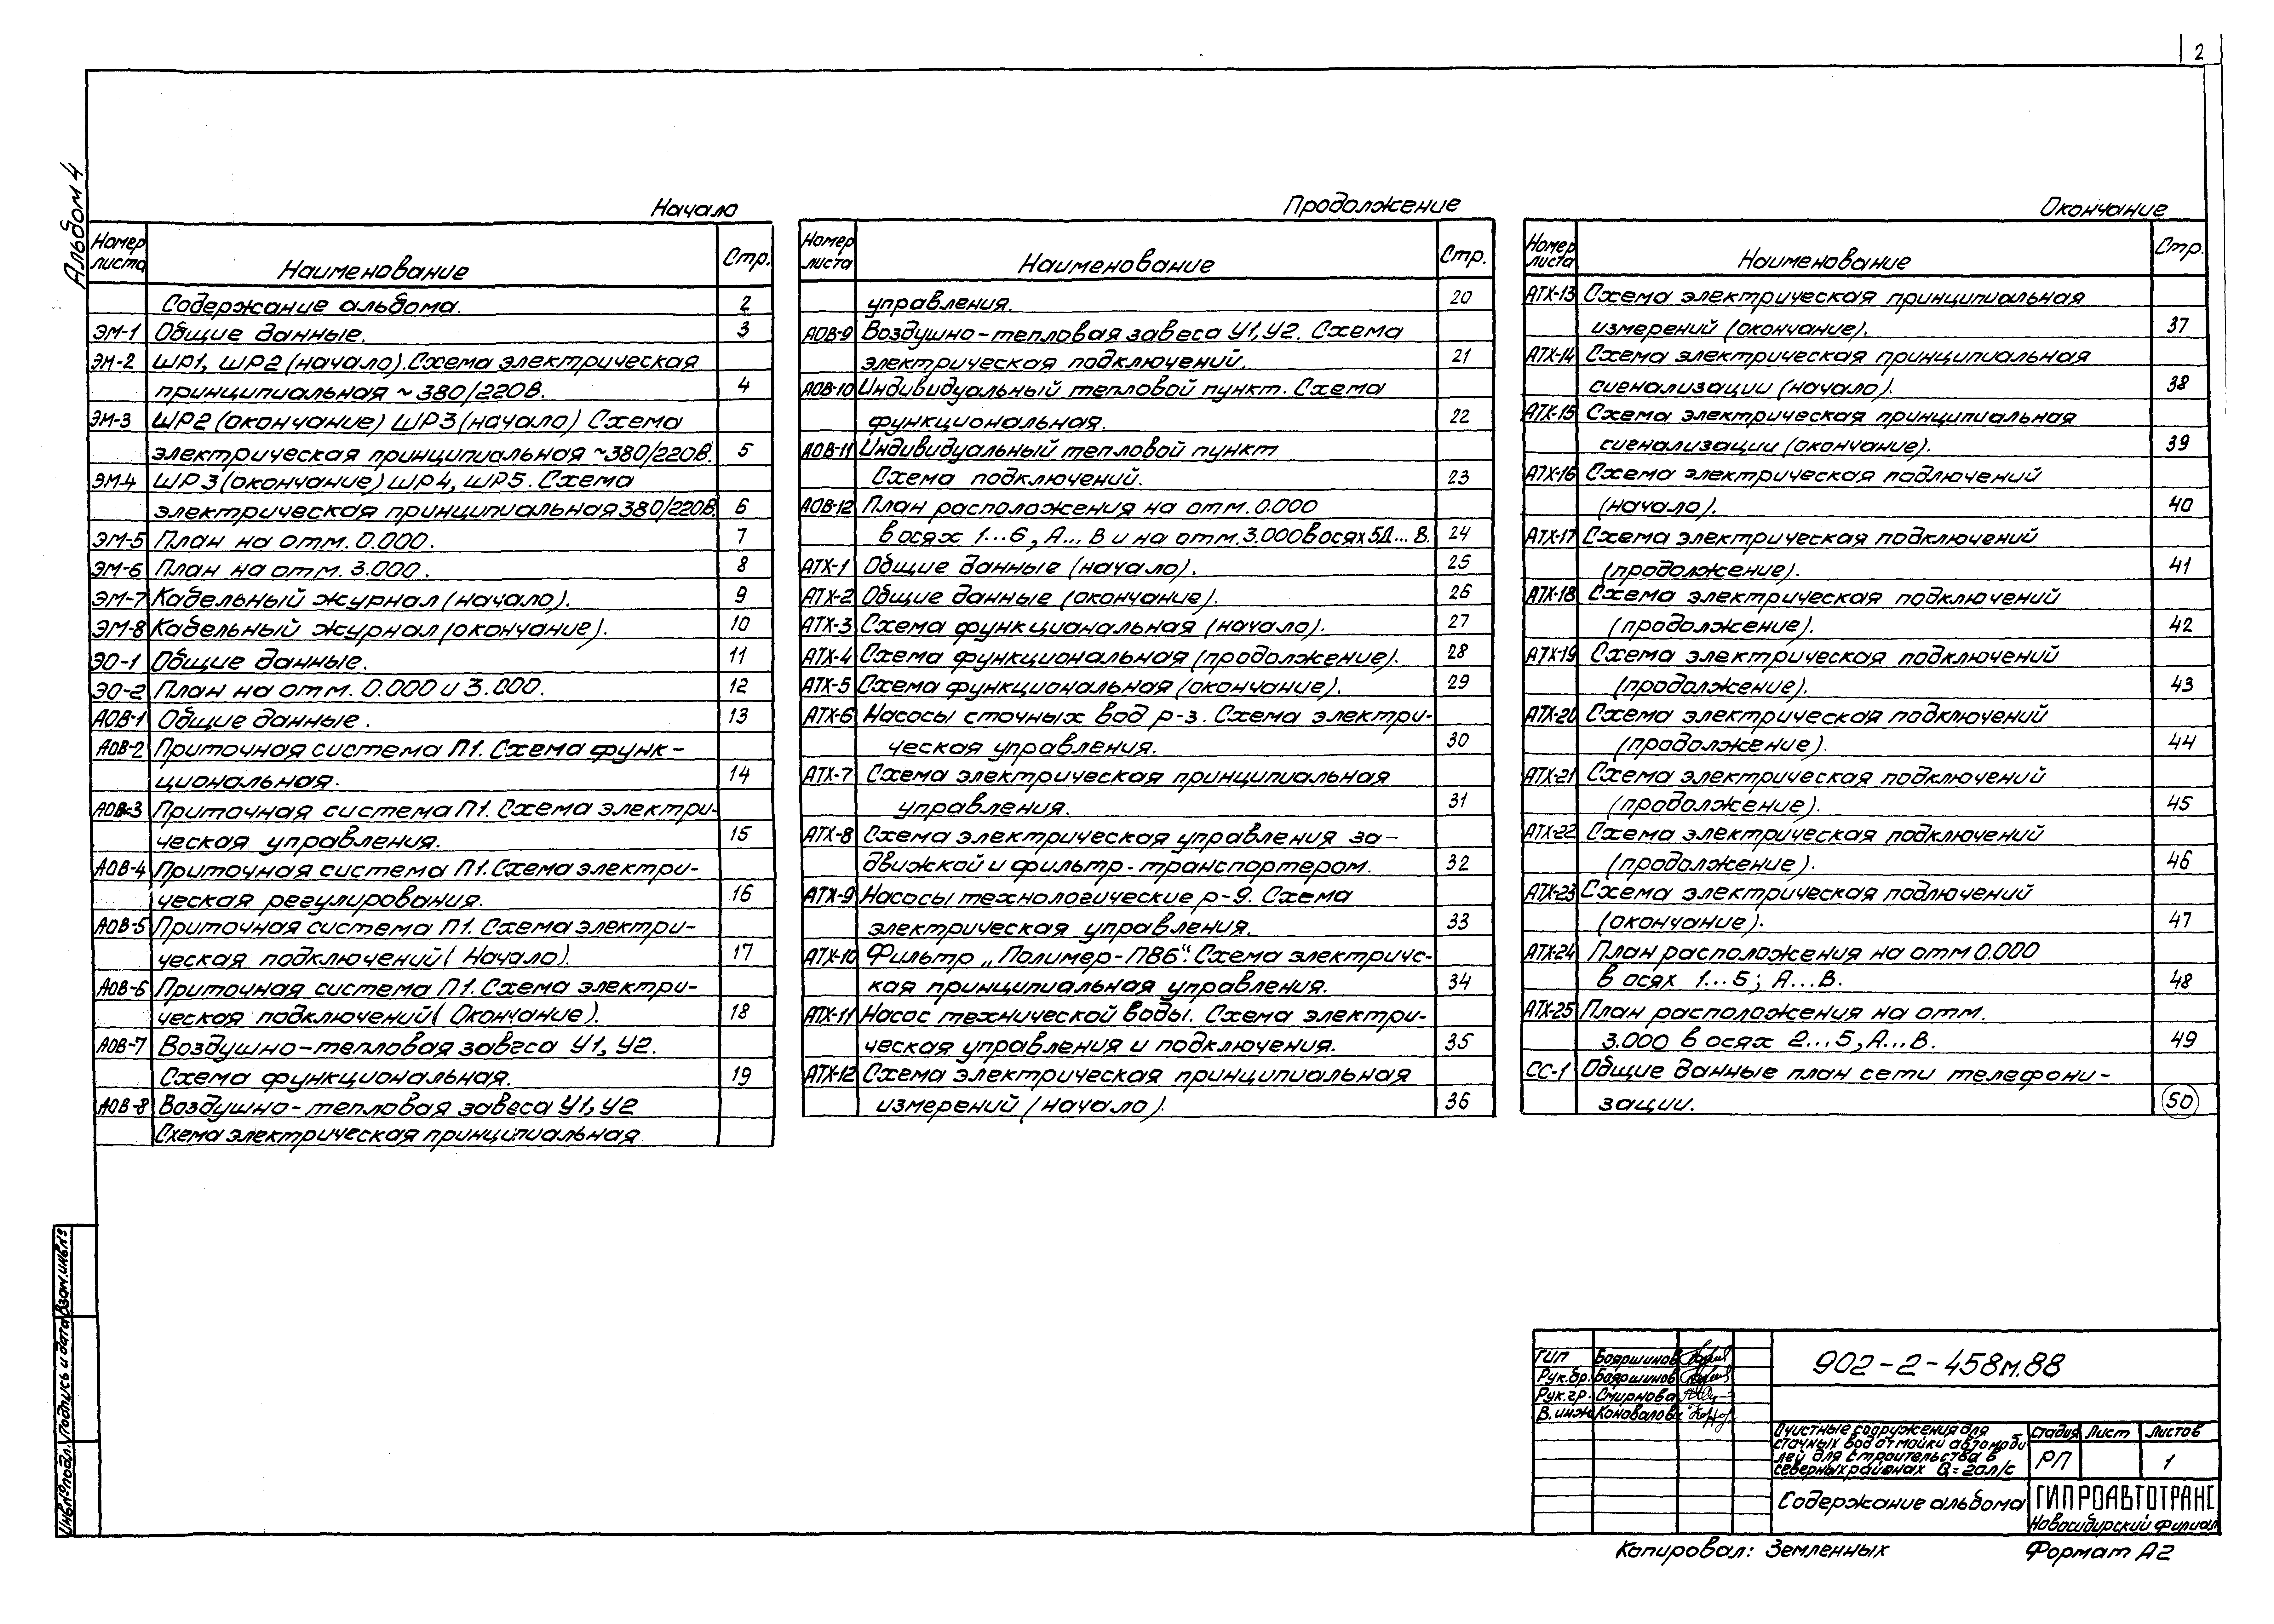 2
Альбом 4
Начало
Номер листа Наименование Стр.
Содержание альбома. 2
ЭМ-1 Общие данные. 3
ЭМ-2 ШР1, ШР2 (начало). Схема электрическая
принципиальная ~ 380/220В. 4
ЭМ-3 ШР2 (окончание) ШР3 (начало) Схема
электрическая принципиальная ~380/220В. 5
ЭМ-4 ШР3 (окончание) ШР4, ШР5. Схема
электрическая принципиальная 380/220В. 6
ЭМ-5 План на отм. 0.000. 7
ЭМ-6 План на отм. 3.000. 8
ЭМ-7 Кабельный журнал (начало). 9
ЭМ-8 Кабельный журнал (окончание). 10
ЭО-1 Общие данные. 11
ЭО-2 План на отм. 0.000 и 3.000. 12
АОВ-1 Общие данные. 13
АОВ-2 Приточная система П1. Схема функ-
циональная. 14
АОВ-3 Приточная система П1. Схема электри-
ческая управления. 15
АОВ-4 Приточная система П1. Схема электри-
ческая регулирования. 16
АОВ-5 Приточная система П1. Схема электри-
ческая подключений (Начало). 17
АОВ-6 Приточная система П1. Схема электри-
ческая подключений (Окончание). 18
АОВ-7 Воздушно-тепловая завеса У1, У2.
Схема функциональная. 19
АОВ-8 Воздушно-тепловая завеса У1, У2
Схема электрическая принципиальная
Продолжение
Номер листа Наименование Стр.
управления. 20
АОВ-9 Воздушно-тепловая завеса У1, У2. Схема
электрическая подключений. 21
АОВ-10 Индивидуальный тепловой пункт. Схема
функциональная. 22
АОВ-11 Индивидуальный тепловой пункт
Схема подключений. 23
АОВ-12 План расположения на отм. 0.000
в осях 1...6, А...В и на отм. 3.000 в осях 5Д...В. 24
АТХ-1 Общие данные (начало). 25
АТХ-2 Общие данные (окончание). 26
АТХ-3 Схема функциональная (начало). 27
АТХ-4 Схема функциональная (продолжение). 28
АТХ-5 Схема функциональная (окончание). 29
АТХ-6 Насосы сточных вод р-з. Схема электри-
ческая управления. 30
АТХ-7 Схема электрическая принципиальная
управления. 31
АТХ-8 Схема электрическая управления за-
движкой и фильтр-транспортером. 32
АТХ-9 Насосы технологические р-9. Схема
электрическая управления. 33
АТХ-10 Фильтр „Полимер-П86“. Схема электричс-
кая принципиальная управления. 34
АТХ-11 Насос технической воды. Схема электри-
ческая управления и подключения. 35
АТХ-12 Схема электрическая принципиальная
измерений (начало). 36
Окончание
Номер листа Наименование Стр.
АТХ-13 Схема электрическая принципиальная
измерений (окончание). 37
АТХ-14 Схема электрическая принципиальная
сигнализации (начало). 38
АТХ-15 Схема электрическая принципиальная
сигнализации (окончание). 39
АТХ-16 Схема электрическая подлючений
(начало). 40
АТХ-17 Схема электрическая подключений
(продолжение). 41
АТХ-18 Схема электрическая подключений
(продолжение). 42
АТХ-19 Схема электрическая подключений
(продолжение). 43
АТХ-20 Схема электрическая подключений
(продолжение). 44
АТХ-21 Схема электрическая подключений
(продолжение). 45
АТХ-22 Схема электрическая подключений
(продолжение). 46
АТХ-23 Схема электрическая подлючений
(окончание). 47
АТХ-24 План расположения на отм 0.000
в осях 1...5; А...В. 48
АТХ-25 План расположения на отм.
3.000 в осях 2...5, А...В. 49
СС-1 Общие данные план сети телефони-
зации. 50
Инв.№подл. Подпись и дата Взам.инв.№
ГИП Бояршинов
Рук.бр. Бояршинов
Рук.гр. Смирнова
В.инж Коновалов
902-2-458м.88
Очистные сооружения для
сточных вод от мойки автомоби
лей для строительства в
северных районах Q=20л/с
Стадия Лист Листов
РП 1
Содержание альбома
ГИПРОАВТОТРАНС
Новосибирский филиал
Копировал: Земленных
Формат А2